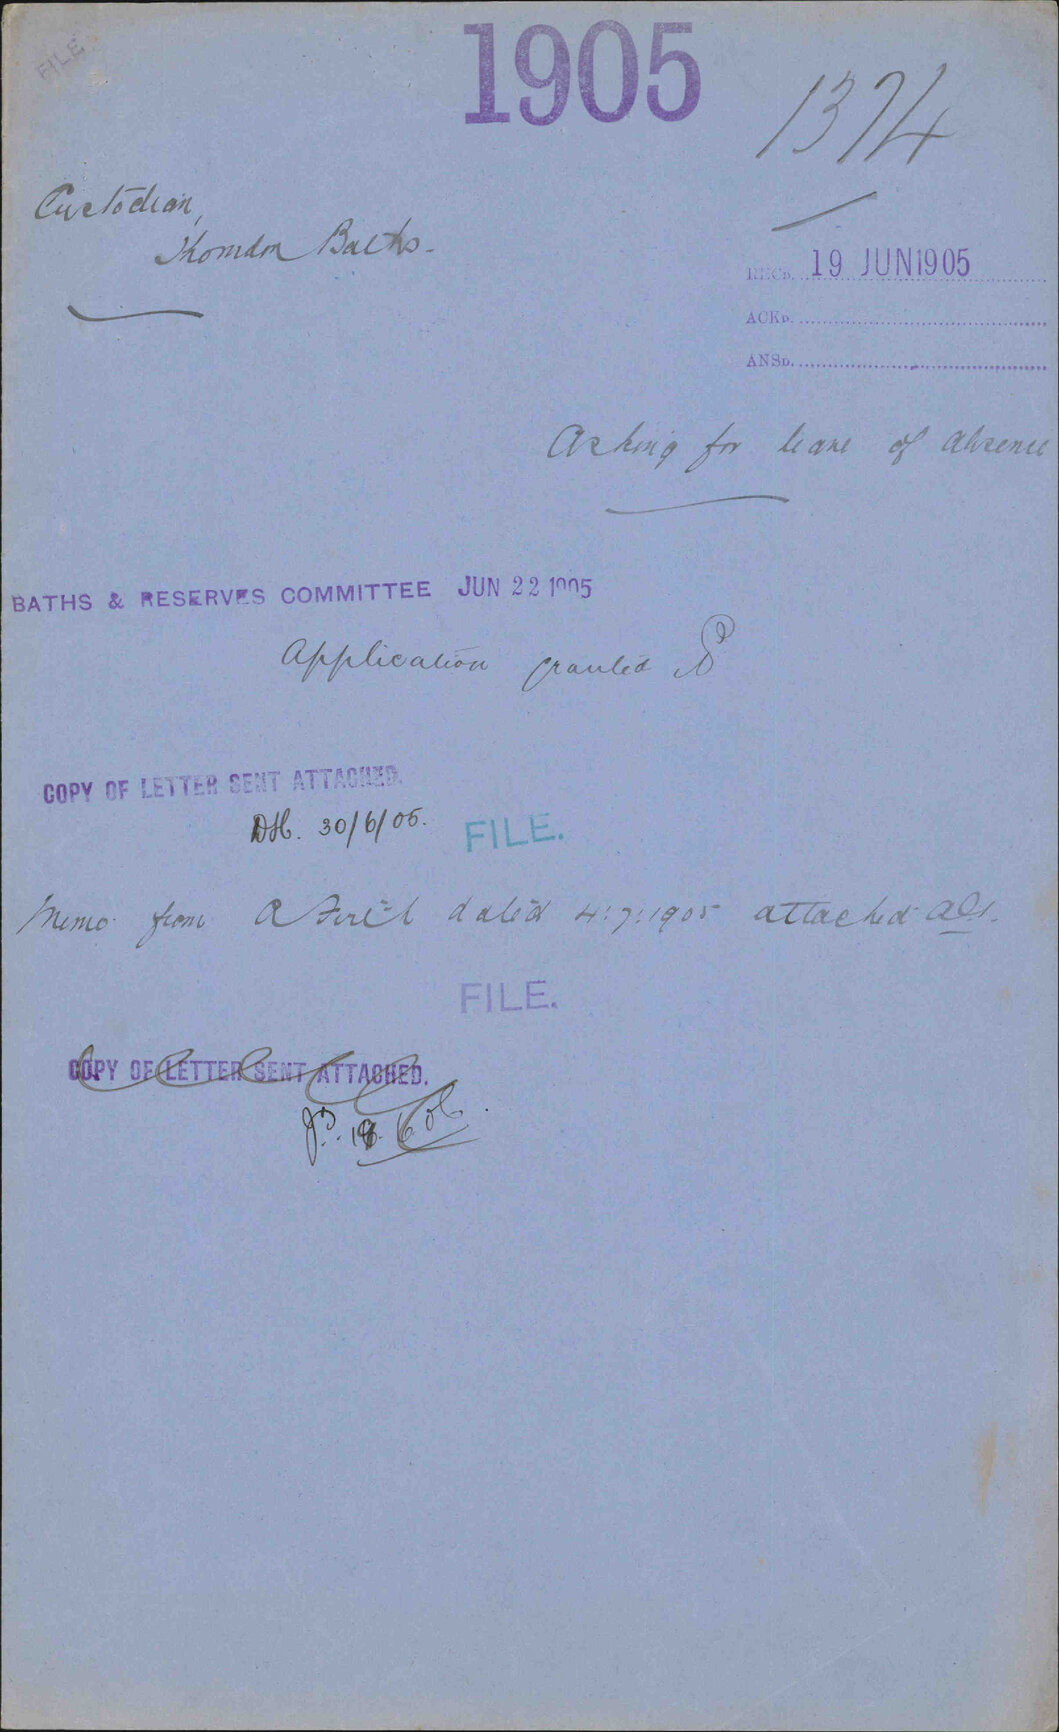 FILE
1905
1374
Custodian,
Thorndon Baths.
RECD. 19 JUN 1905
ACKD.
ANSD.
Asking for leave of absence
BATHS & RESERVES COMMITTEE JUN 22 1905
Application granted
COPY OF LETTER SENT ATTACHED.
30/6/05.
FILE.
Memo from A dated 4:7:1905 attached
FILE.
COPY OF LETTER SENT ATTACHED.